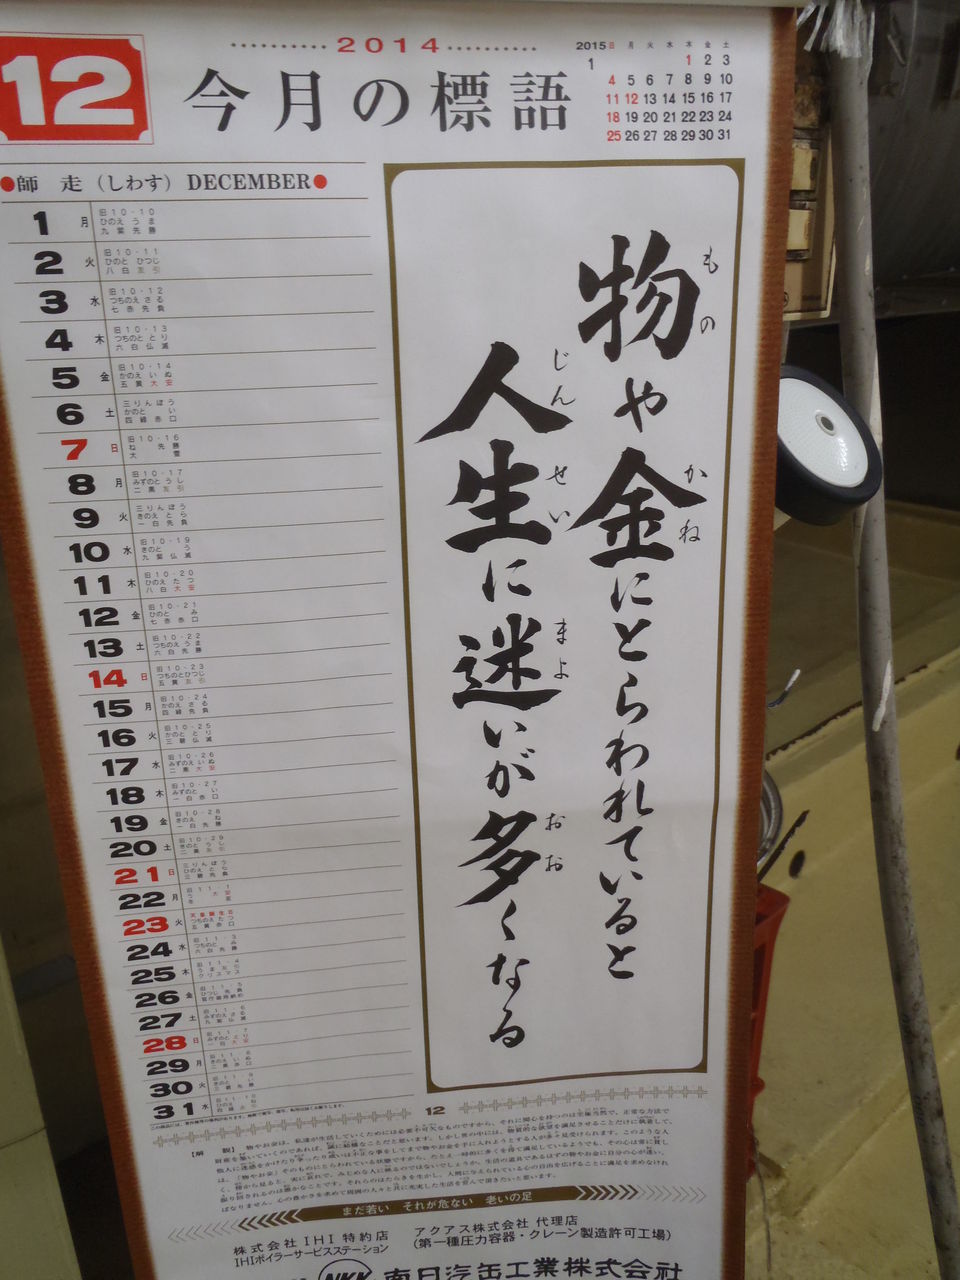 12
2014
今月の標語
2015 日 月 火 水 木 金 土
1 1 2 3
4 5 6 7 8 9 10
11 12 13 14 15 16 17
18 19 20 21 22 23 24
25 26 27 28 29 30 31
師走（しわす） DECEMBER
1 月 旧10・10 ひのえうま 九紫先勝
2 火 旧10・11 ひのとひつじ 八白友引
3 水 旧10・12 つちのえさる 七赤先負
4 木 旧10・13 つちのととり 六白仏滅
5 金 旧10・14 かのえいぬ 五黄大安
6 土 三りんぼう かのとい 四緑赤口
7 日 旧10・16 ね先勝 大雪
8 月 旧10・17 みずのとうし 二黒友引
9 火 三りんぼう きのえとら 一白先負
10 水 旧10・19 きのとう 九紫仏滅
11 木 旧10・20 ひのえたつ 八白大安
12 金 旧10・21 ひのとみ 七赤赤口
13 土 旧10・22 つちのえうま 六白先勝
14 日 旧10・23 つちのとひつじ 五黄友引
15 月 旧10・24 かのえさる 四緑先負
16 火 旧10・25 かのととり 三碧仏滅
17 水 旧10・26 みずのえいぬ 二黒大安
18 木 旧10・27 みずのとい 一白赤口
19 金 旧10・28 きのえね 一白先勝
20 土 旧10・29 きのとうし 二黒友引
21 日 三りんぼう ひのえとら 三碧先負
22 月 旧11・1
23 火 天皇誕生日 つちのえたつ 五黄赤口
24 水 旧11・3 つちのとみ 六白先勝
25 木 旧11・4 うま友引 クリスマス
26 金 旧11・5 ひつじ先負 官庁御用納め
27 土 旧11・6 みずのえさる 九紫仏滅
28 日 旧11・7 みずのととり 一白大安
29 月 旧11・8 きのえいぬ 二黒赤口
30 火 旧11・9 きのとい 三碧先勝
31 水 旧11・10
物や金にとらわれていると
もの かね
人生に迷いが多くなる
じんせい まよ おお
12
【解説】
まだ若い それが危ない 老いの足
株式会社IHI特約店
IHIボイラーサービスステーション
アクアス株式会社 代理店
（第一種圧力容器・クレーン製造許可工場）
NKK 南日汽缶工業株式会社